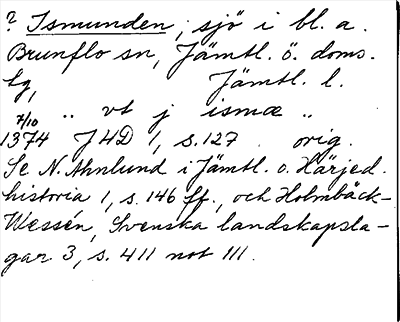 ? Ismunden, sjö i bl. a.
Brunflo sn, Jämtl. ö. doms.
tg, Jämtl. l.
7/10 „ vt j ismæ „
1374 J4D 1, s. 127 orig.
Se N. Ahnlund i Jämtl. o. Härjed.
historia 1, s. 146 ff., och Holmbäck-
Wessén, Svenska landskapsla-
gar 3, s. 411 not 111.